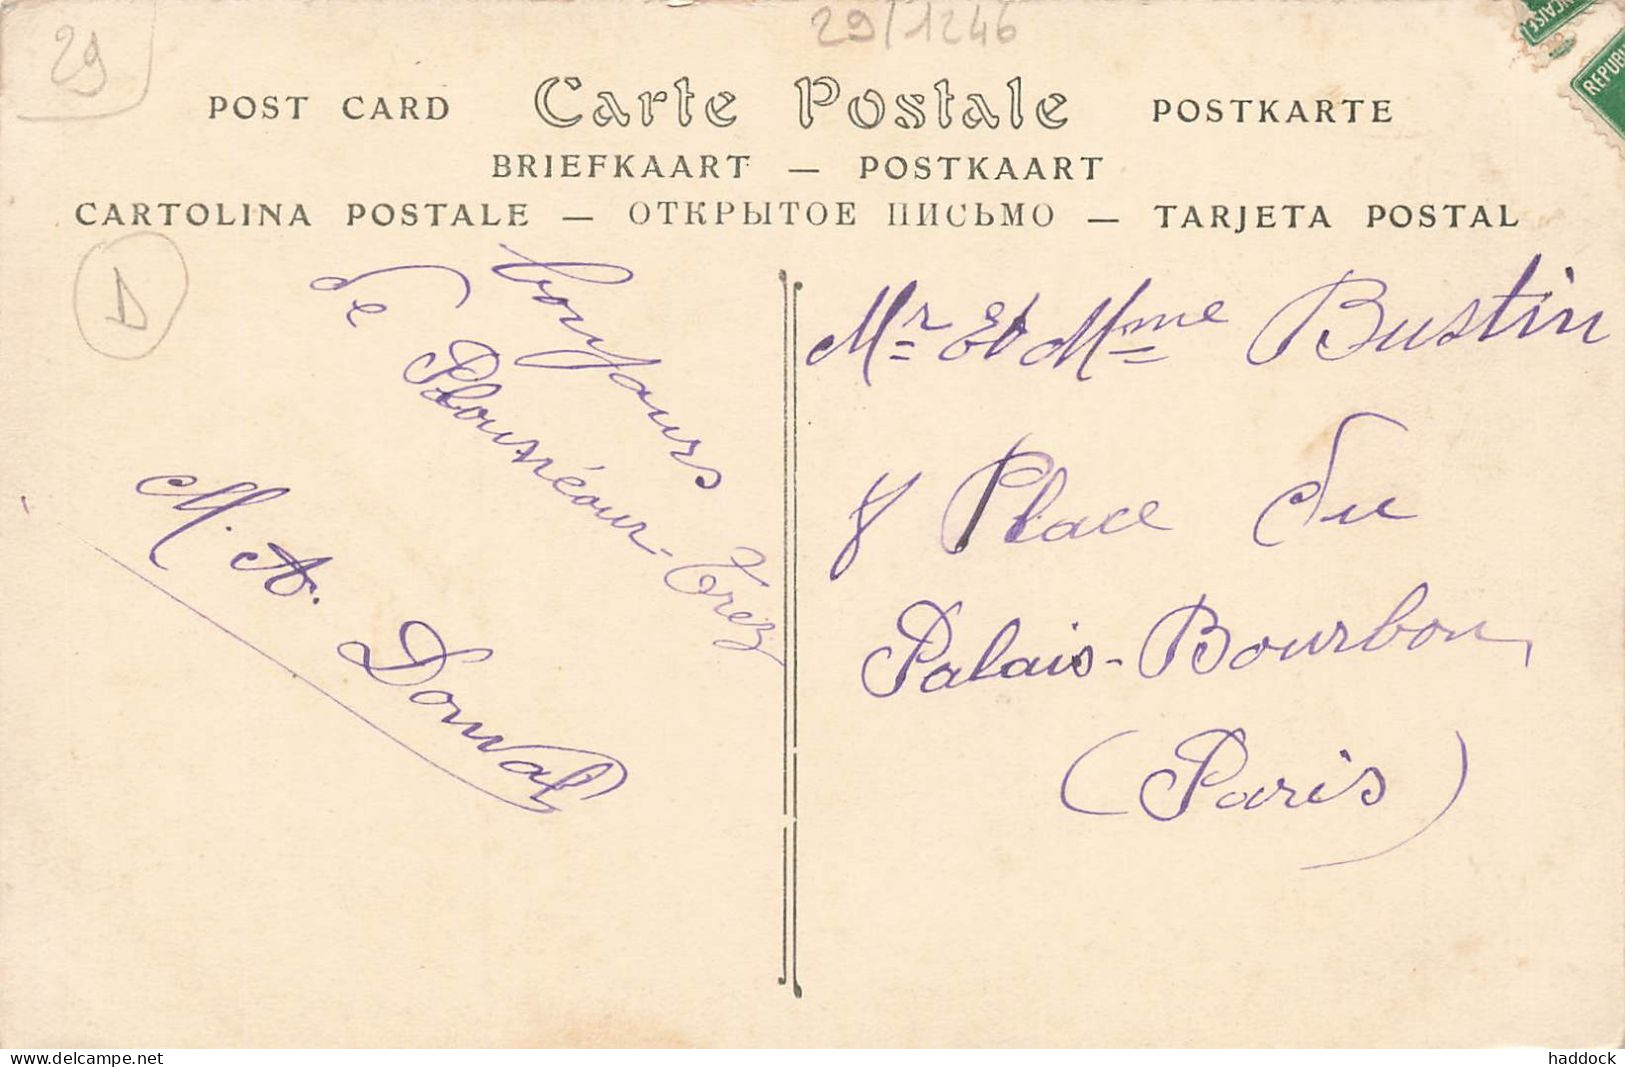 29
29/1246
ÇAISE
REPUB
POST CARD Carte Postale POSTKARTE
BRIEFKAART — POSTKAART
CARTOLINA POSTALE — ОТКРЫТОЕ ПИСЬМО — TARJETA POSTAL
D
Toujours
de Plounéour-Trez
M. A. Donval
Mr Et Mme Bustin
8 Place du
Palais-Bourbon,
(Paris)
www.delcampe.net
haddock